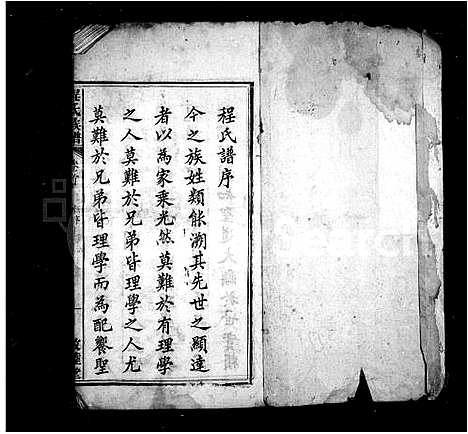 程氏譜序
今之族姓類能溯其先世之顯達
者以為家乘光然莫難於有理學
之人莫難於兄弟皆理學之人尤
莫難於兄弟皆理學而為配饗聖
程氏族譜